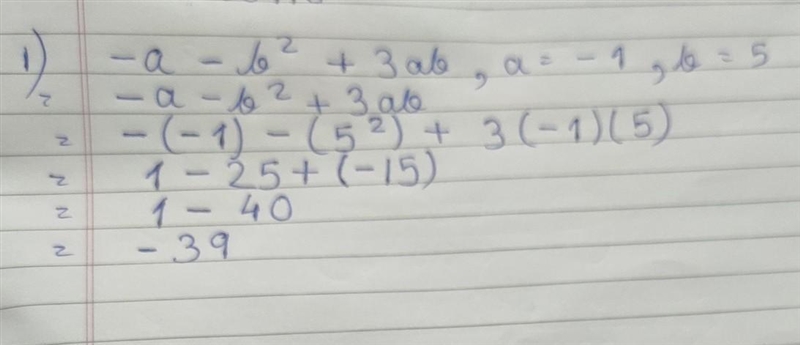 1) -a - b² + 3ab, a = -1, b = 5
= -a - b² + 3ab
= -(-1) - (5²) + 3(-1)(5)
= 1 - 25 + (-15)
= 1 - 40
= -39